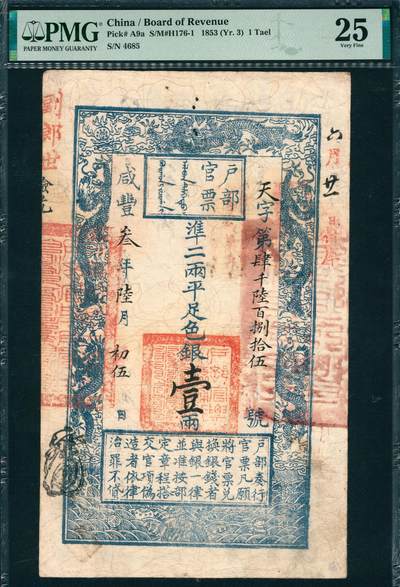 PMG
PAPER MONEY GUARANTY
China / Board of Revenue
Pick# A9a S/M#H176-1 1853 (Yr. 3) 1 Tael
S/N 4685
25
Very Fine
六月廿日
戶部
官票
天字第肆千陸百捌拾伍號
準二兩平足色銀壹兩
咸豐叁年陸月初伍日
戶部奏行
官票凡願
將官票兌
換銀錢者
與銀一律
並准按部
定章程搭
交官項偽
造者依律
治罪不貸